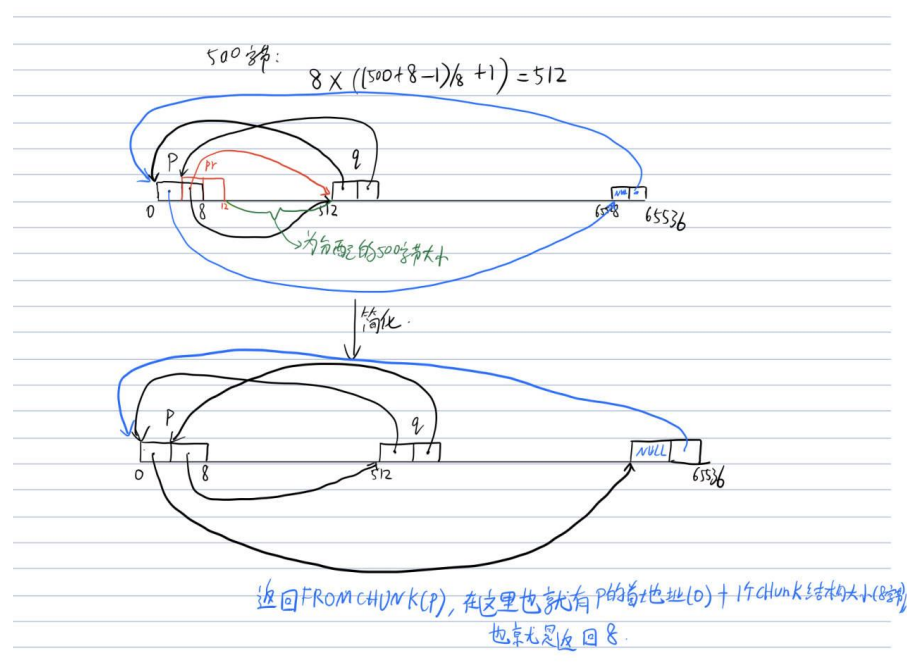 500字节:
8 × ((500+8-1)/8 +1) = 512
P pr q
NULL
0 8 12 512 65528 65536
为分配的500字节大小
简化.
P q
NULL
0 8 512 65536
返回FROMCHUNK(P), 在这里也就有P的首地址(0) + 1个CHUNK结构大小(8字节)
也就是返回8.